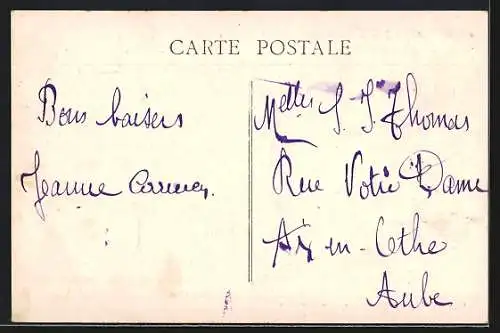 CARTE POSTALE
Bons baisers
Jeanne
Melles S. J. Thomas
Rue Notre Dame
Aix-en-Othe
Aube